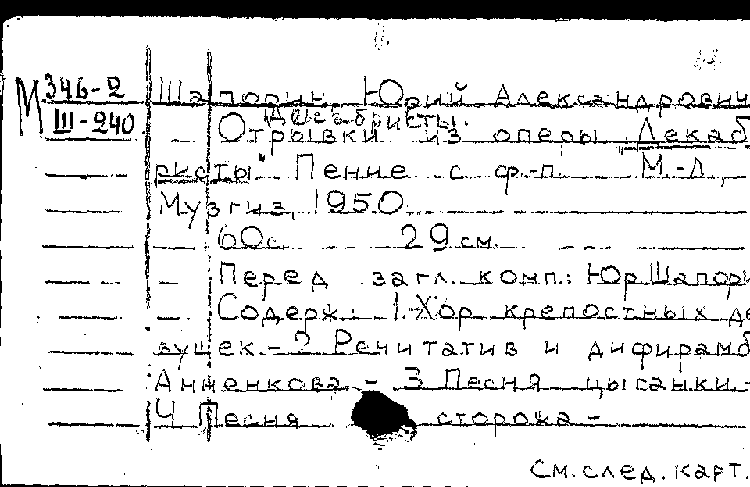 М 346-2
III-240
Шапорин, Юрий Александрович
Декабристы.
Отрывки из оперы „Декаб
ристы" Пение с ф.-п. М.-Л.,
Музгиз, 1950.
60с. 29 см.
Перед загл. комп.: Юр.Шапори
Содерж.: 1.Хор крепостных де
вушек.-2 Речитатив и дифирамб
Анненкова.- 3 Песня цыганки.-
4 Песня сторожа-
См.след.карт.